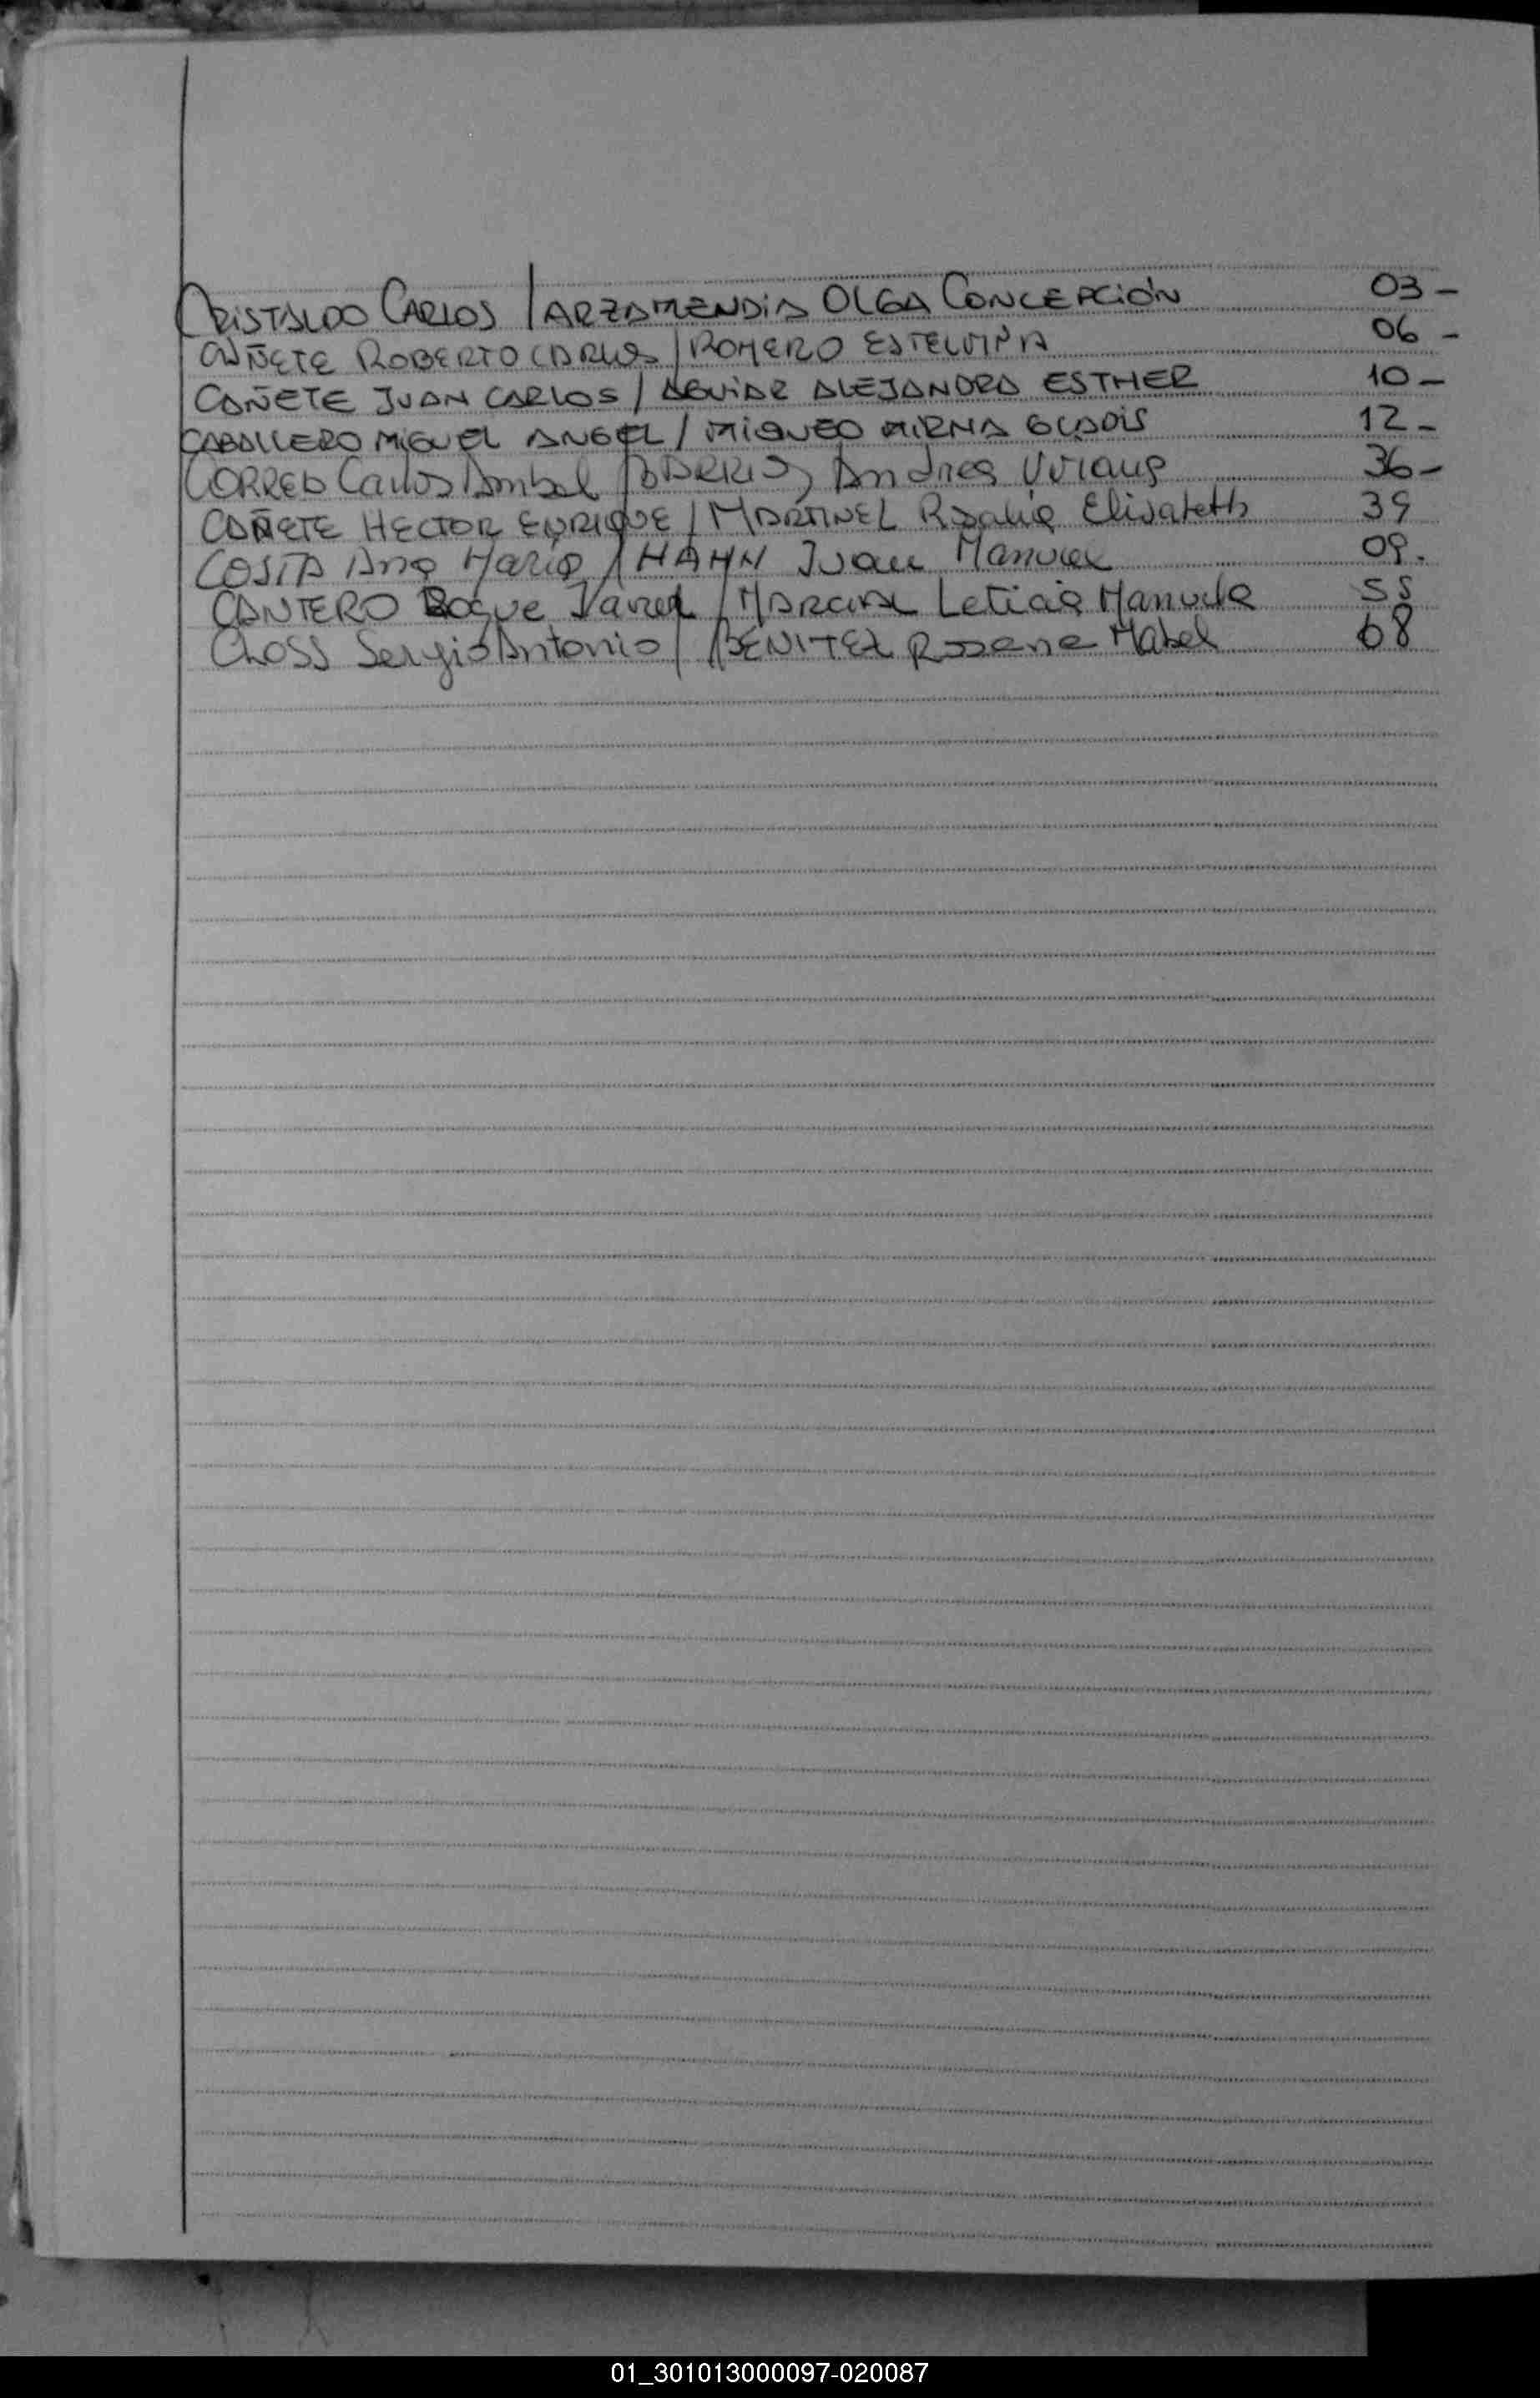 CRISTALDO CARLOS / ARZAMENDIA OLGA CONCEPCIÓN 03 -
CAÑETE ROBERTO CARLOS / ROMERO ESTELVINA 06 -
CAÑETE JUAN CARLOS / AGUIAR ALEJANDRA ESTHER 10 -
CABALLERO MIGUEL ANGEL / MIQUEO MIRNA GLADIS 12 -
CORREA Carlos Anibal / BARRIOS Andrea Viviana 36 -
CAÑETE HECTOR ENRIQUE / MARTINEZ Rosalia Elisabeth 39
COSTA Ana Maria / HAHN Juan Manuel 09.
CANTERO Roque Javier / MARCIAL Leticia Manuela 55
CLOSS Sergio Antonio / BENITEZ Rosana Mabel 68
01_301013000097-020087